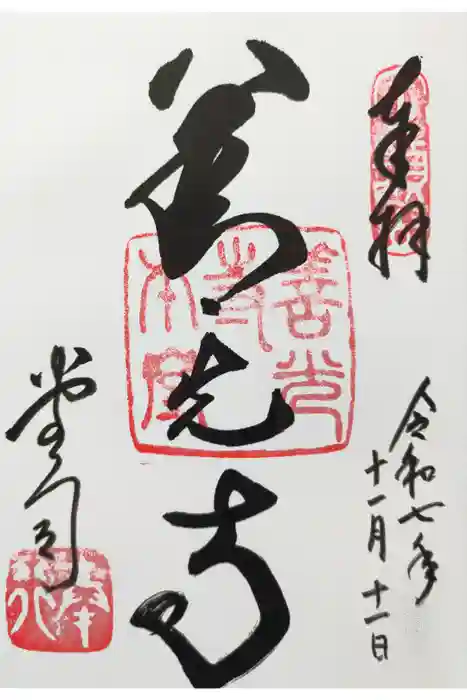 奉拝
令和七年
十一月十一日
善光寺
善光
寺
本堂
堂司